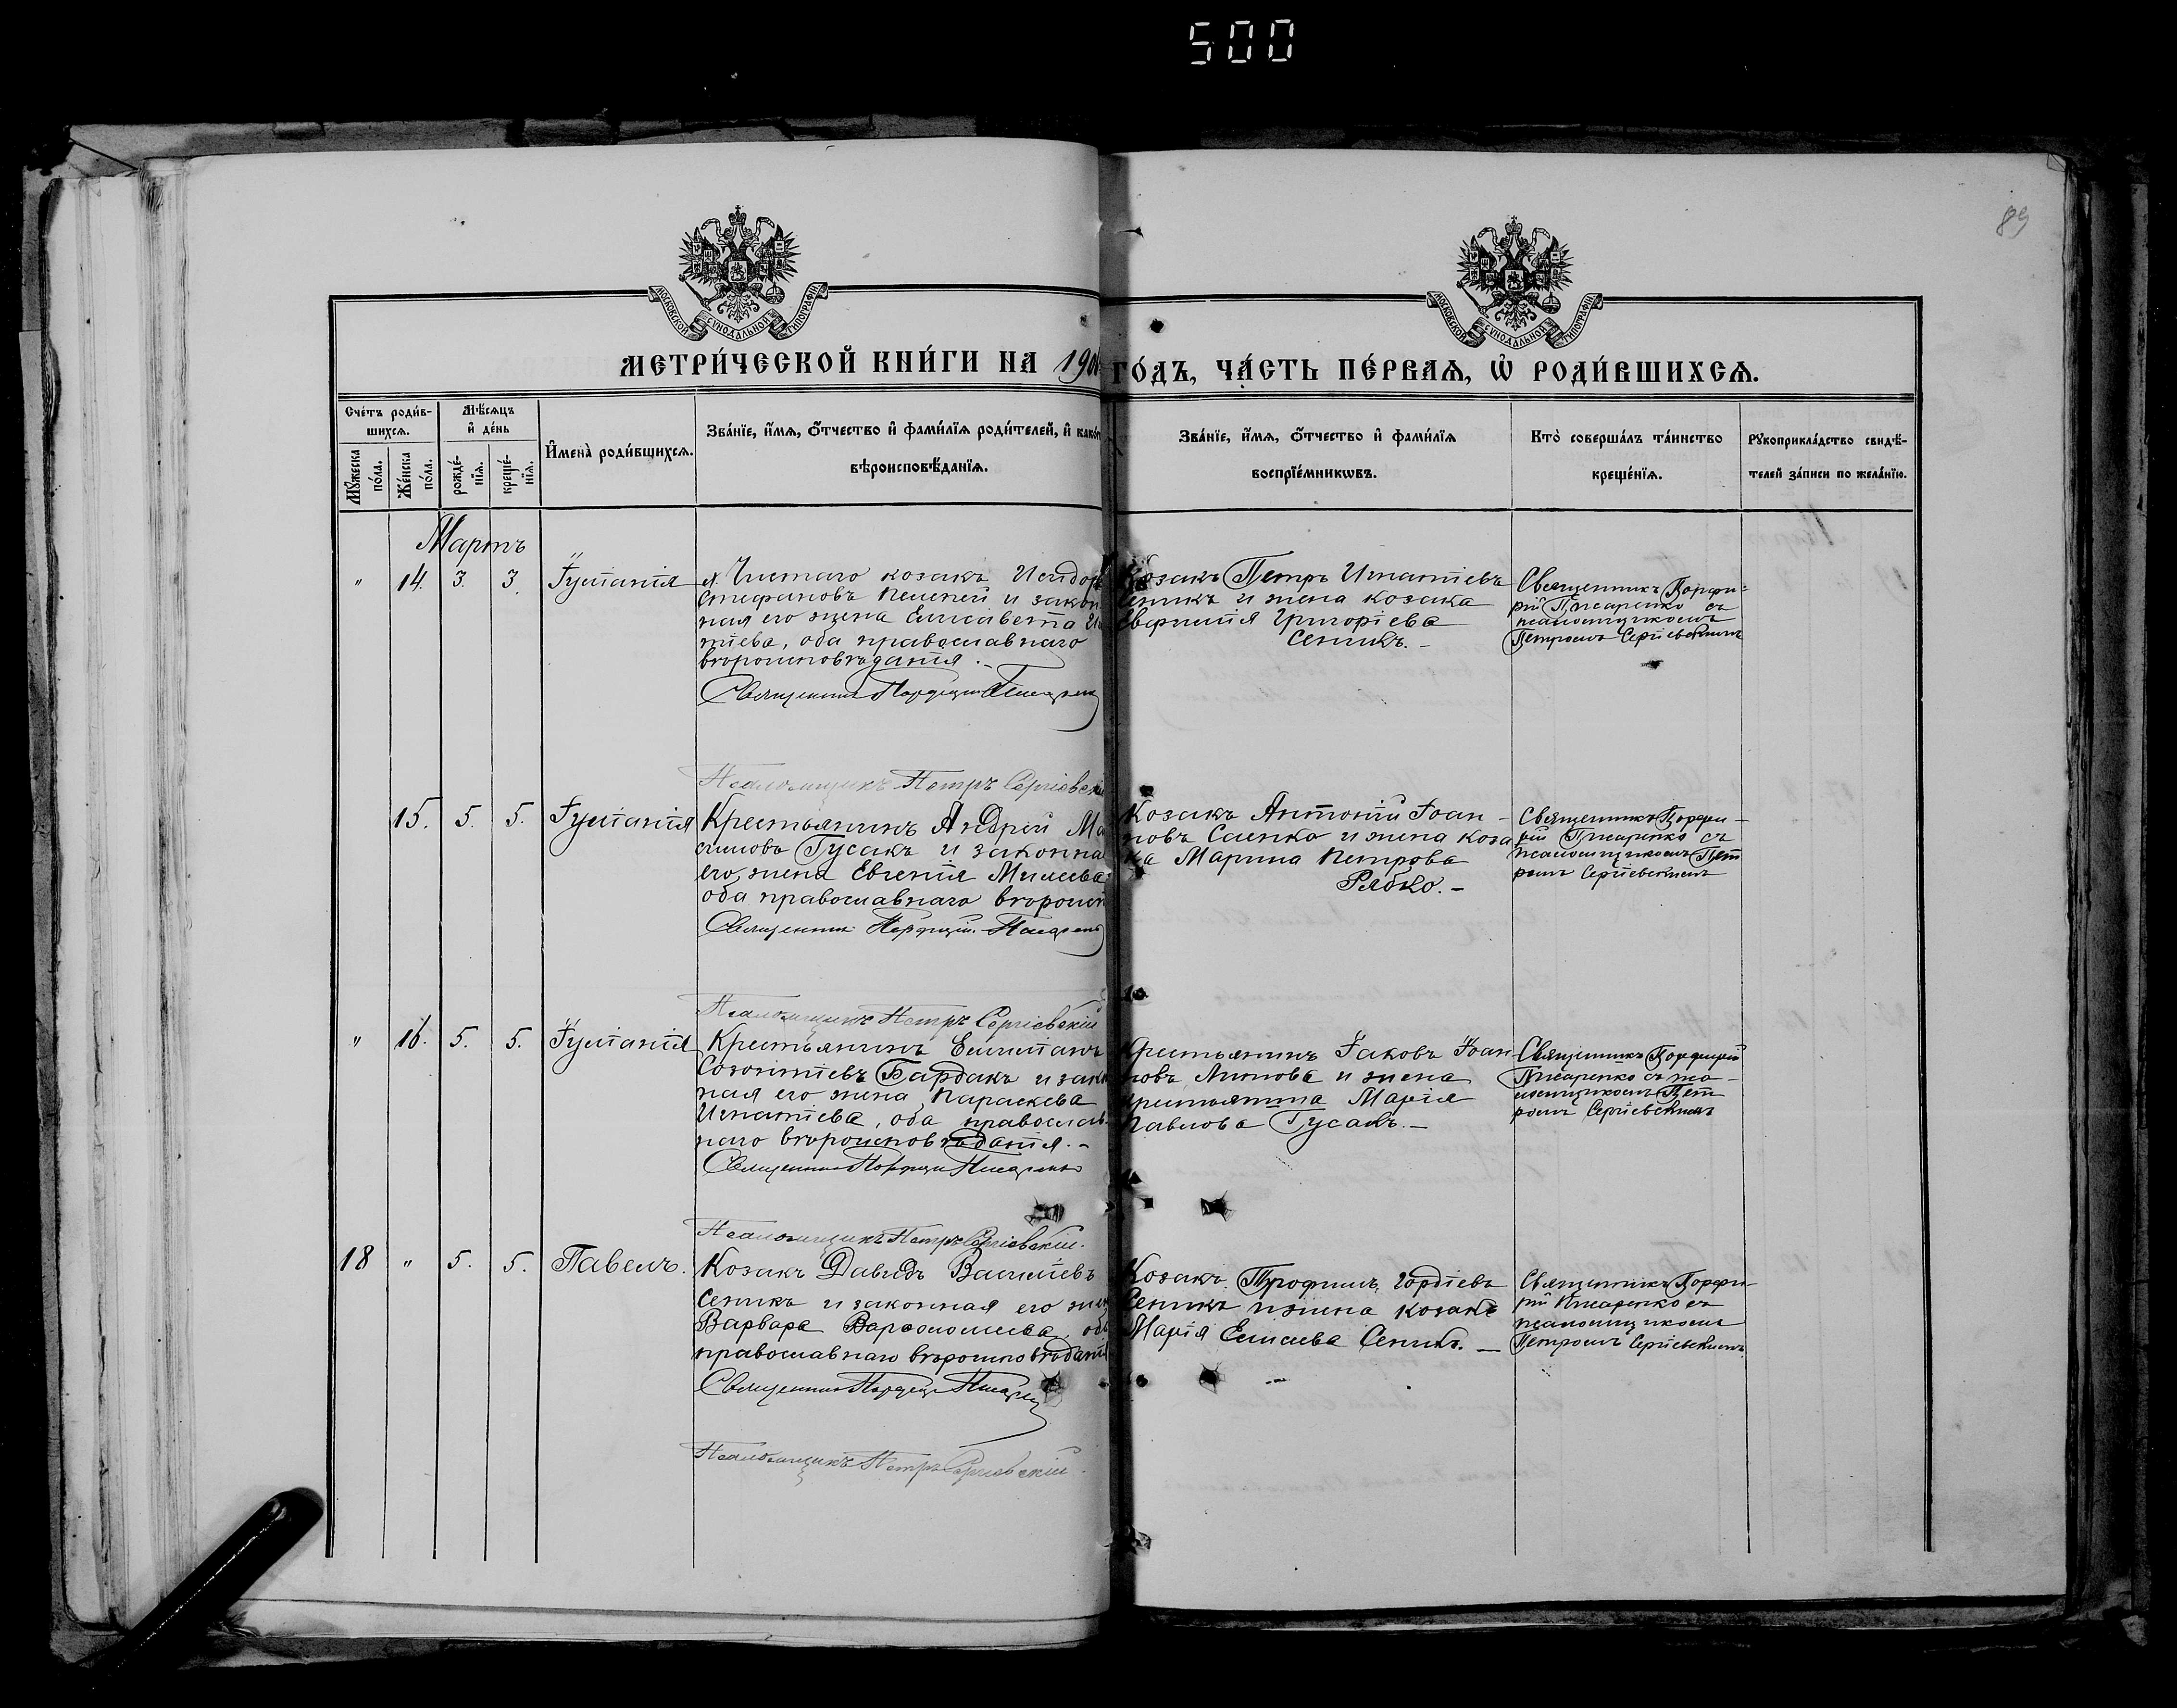 500
89
МОСКОВСКОЙ СѴНОДАЛЬНОЙ ТИПОГРАФІИ
МОСКОВСКОЙ СѴНОДАЛЬНОЙ ТИПОГРАФІИ
МЕТРИ́ЧЕСКОЙ КНИ́ГИ НА 190
ГО́ДЪ, ЧА́СТЬ ПЕ́РВАѦ, Ѡ҆ РОДИ́ВШИХСѦ.
Сче́тъ роди́в-
шихсѧ.
Мꙋ́жеска по́ла.
Же́нска по́ла.
Мѣ́сѧцъ
и҆ де́нь
рожде́-нїѧ.
креще́-нїѧ.
И҆мена̀ роди́вшихсѧ.
Зва́нїе, и҆́мѧ, ѻ҆́тчество и҆ фами́лїѧ роди́телей, и҆ како́г
вѣроисповѣ́данїѧ.
Зва́нїе, и҆́мѧ, ѻ҆́тчество и҆ фами́лїѧ
воспрїе́мникѡвъ.
Кто̀ соверша́лъ та́инство
креще́нїѧ.
Рꙋкоприкла́дство свидѣ́-
телей за́писи по жела́нїю.
Мартъ
" 14. 3. 3. Іуліанія
Чистаго козакъ Исидоръ
Стефановъ Пелепей и закон
ная его жена Елисавета Иг
тіева, оба православнаго
вѣроисповѣданія.
Священникъ Порфирій Писаренко
Псаломщикъ Петръ Сергіевскій
Козакъ Петръ Игнатіевъ
Сеникъ и жена козака
Евфимія Григоріева
Сеникъ. –
Священникъ Порфи-
рій Писаренко съ
псаломщикомъ
Петромъ Сергіевскимъ
15. 5. 5. Іуліанія
Крестьянинъ Андрей Ма
симовъ Гусакъ и законна
его жена Евгенія Михеева
оба православнаго вѣроисп
Священникъ Порфирій Писаренко
Псаломщикъ Петръ Сергіевскій
Козакъ Антоній Іоан-
новъ Саенко и жена коза
ка Марина Петрова
Рябко. –
Священникъ Порфи-
рій Писаренко съ
псаломщикомъ Пет
ромъ Сергіевскимъ
" 16. 5. 5. Іуліанія
Крестьянинъ Емиліанъ
Созонтіевъ Бардакъ и зако
ная его жена Параскева
Игнатіева, оба православ-
наго вѣроисповѣданія. –
Священникъ Порфирій Писаренко
Псаломщикъ Петръ Сергіевскій.
Крестьянинъ Іаковъ Іоан-
новъ и жена
крестьянина Марія
Павлова Гусакъ. –
Священникъ Порфирій
Писаренко съ пса-
ломщикомъ Пет
ромъ Сергіевскимъ
18 " 5. 5. Павелъ.
Козакъ Давидъ Василіевъ
Сеникъ и законная его жен
Варвара Варѳоломеева, оба
православнаго вѣроисповѣданія
Священникъ Порфирій Писаренко
Псаломщикъ Петръ Сергіевскій.
Козакъ Трофимъ Гордіевъ
Сеникъ и жена козака
Марія Елисеева Сеникъ. –
Священникъ Порфи-
рій Писаренко съ
псаломщикомъ
Петромъ Сергіевскимъ.